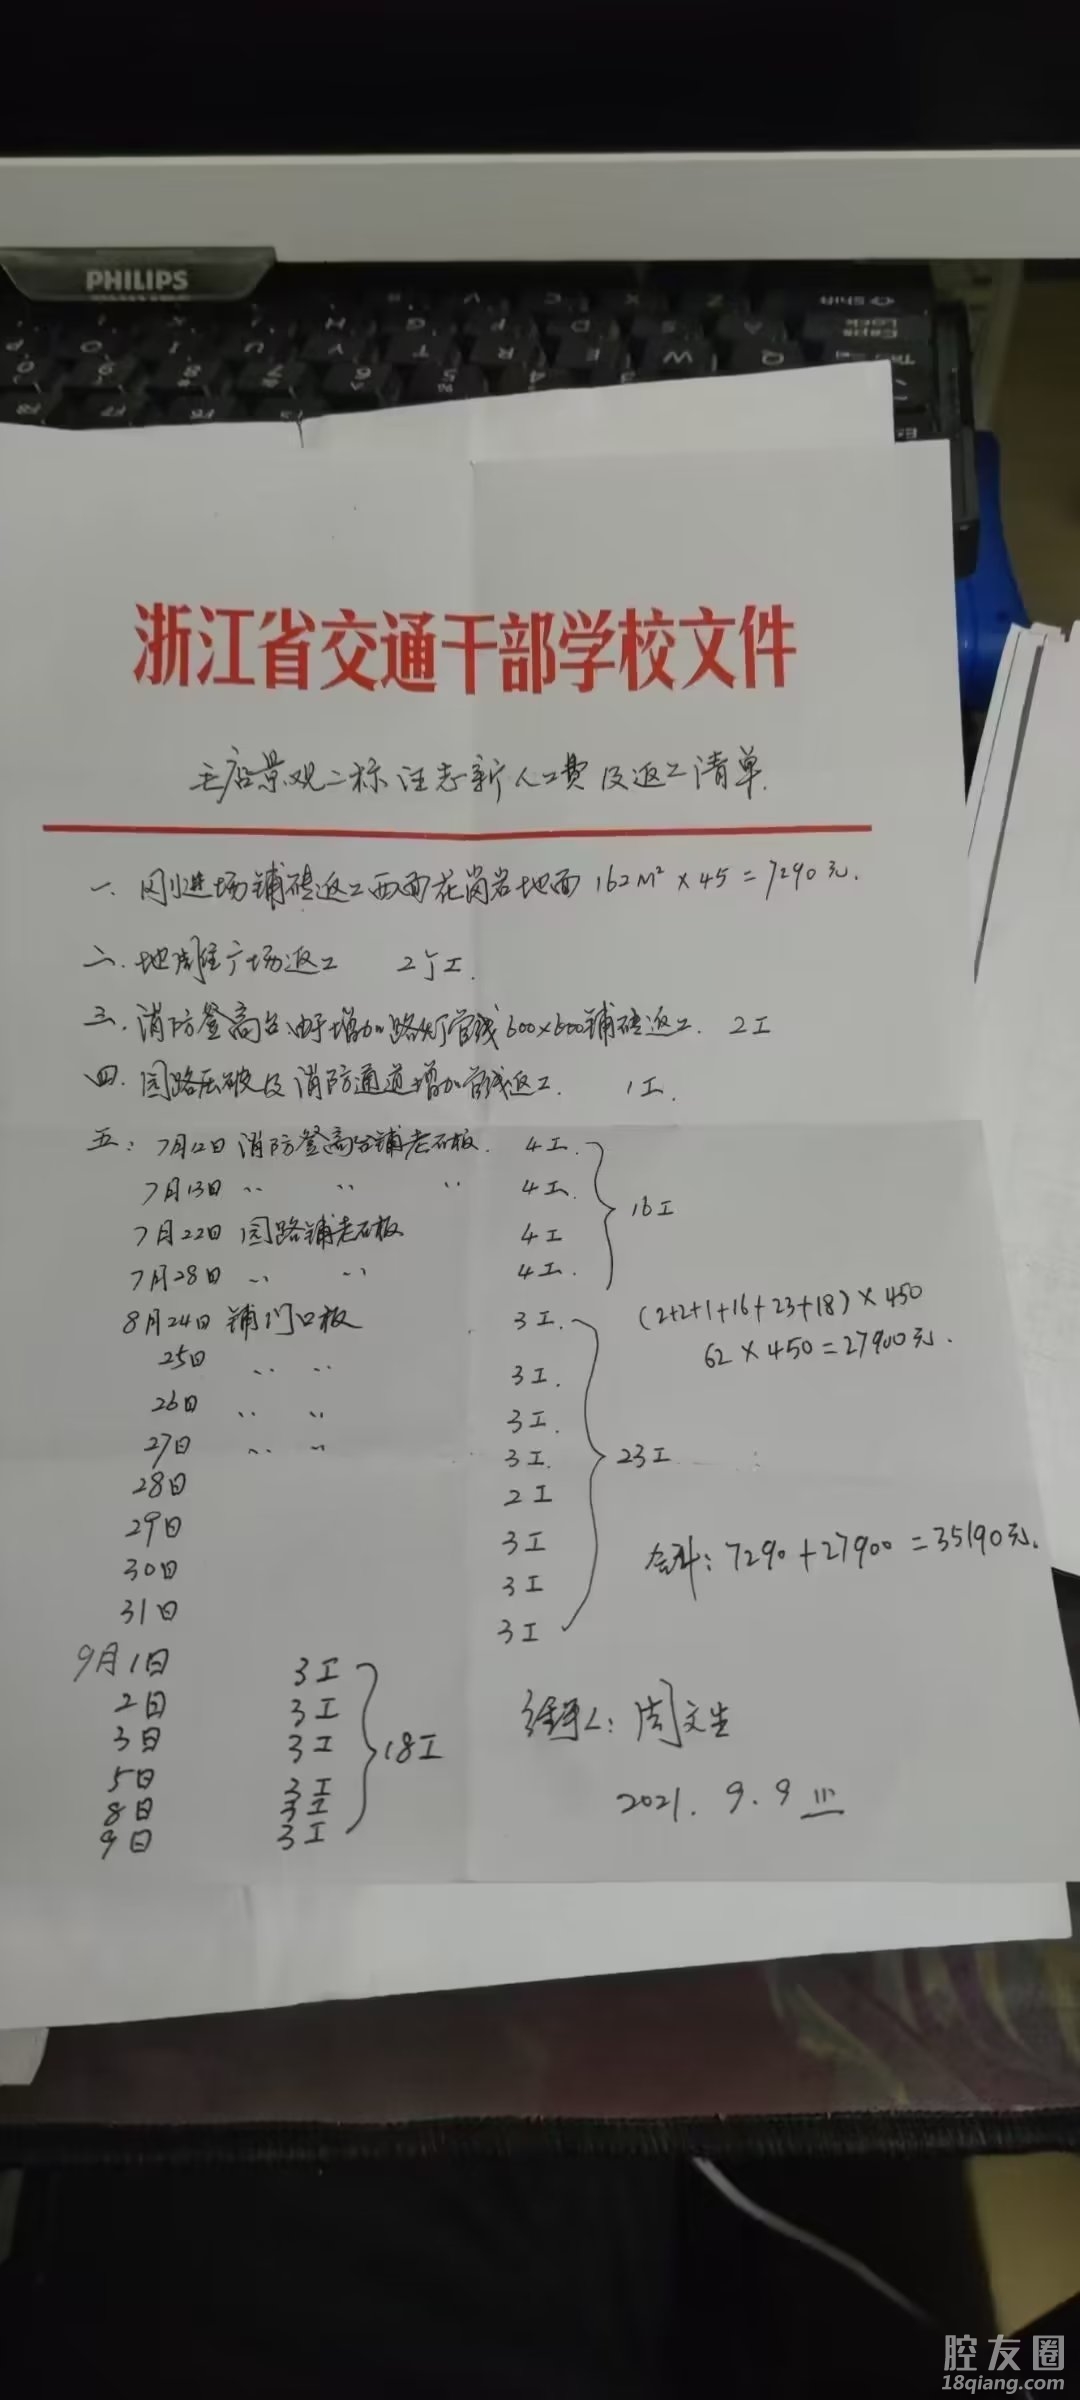 PHILIPS
浙江省交通干部学校文件
王店景观二标汪志新人工费及返工清单.
一. 刚进场铺砖返工西面花岗岩地面 162m² × 45 = 7290元.
二. 地雕广场返工 2个工.
三. 消防登高台由于增加路灯管线600×600铺砖返工. 2工
四. 园路压破及消防通道增加管线返工. 1工.
五: 7月12日 消防登高台铺老石板. 4工.
7月13日 〃 〃 〃 4工.
7月22日 园路铺老石板 4工
7月28日 〃 〃 4工.
16工
8月24日 铺门口板 3工.
25日 〃 〃 3工.
26日 〃 〃 3工.
27日 〃 〃 3工.
28日 2工
29日 3工
30日 3工
31日 3工
23工
(2+2+1+16+23+18) × 450
62 × 450 = 27900元.
合计: 7290 + 27900 = 35190元.
9月1日 3工
2日 3工
3日 3工
5日 3工
8日 3工
9日 3工
18工
经手人: 周文生
2021. 9. 9
腔友圈
18qiang.com